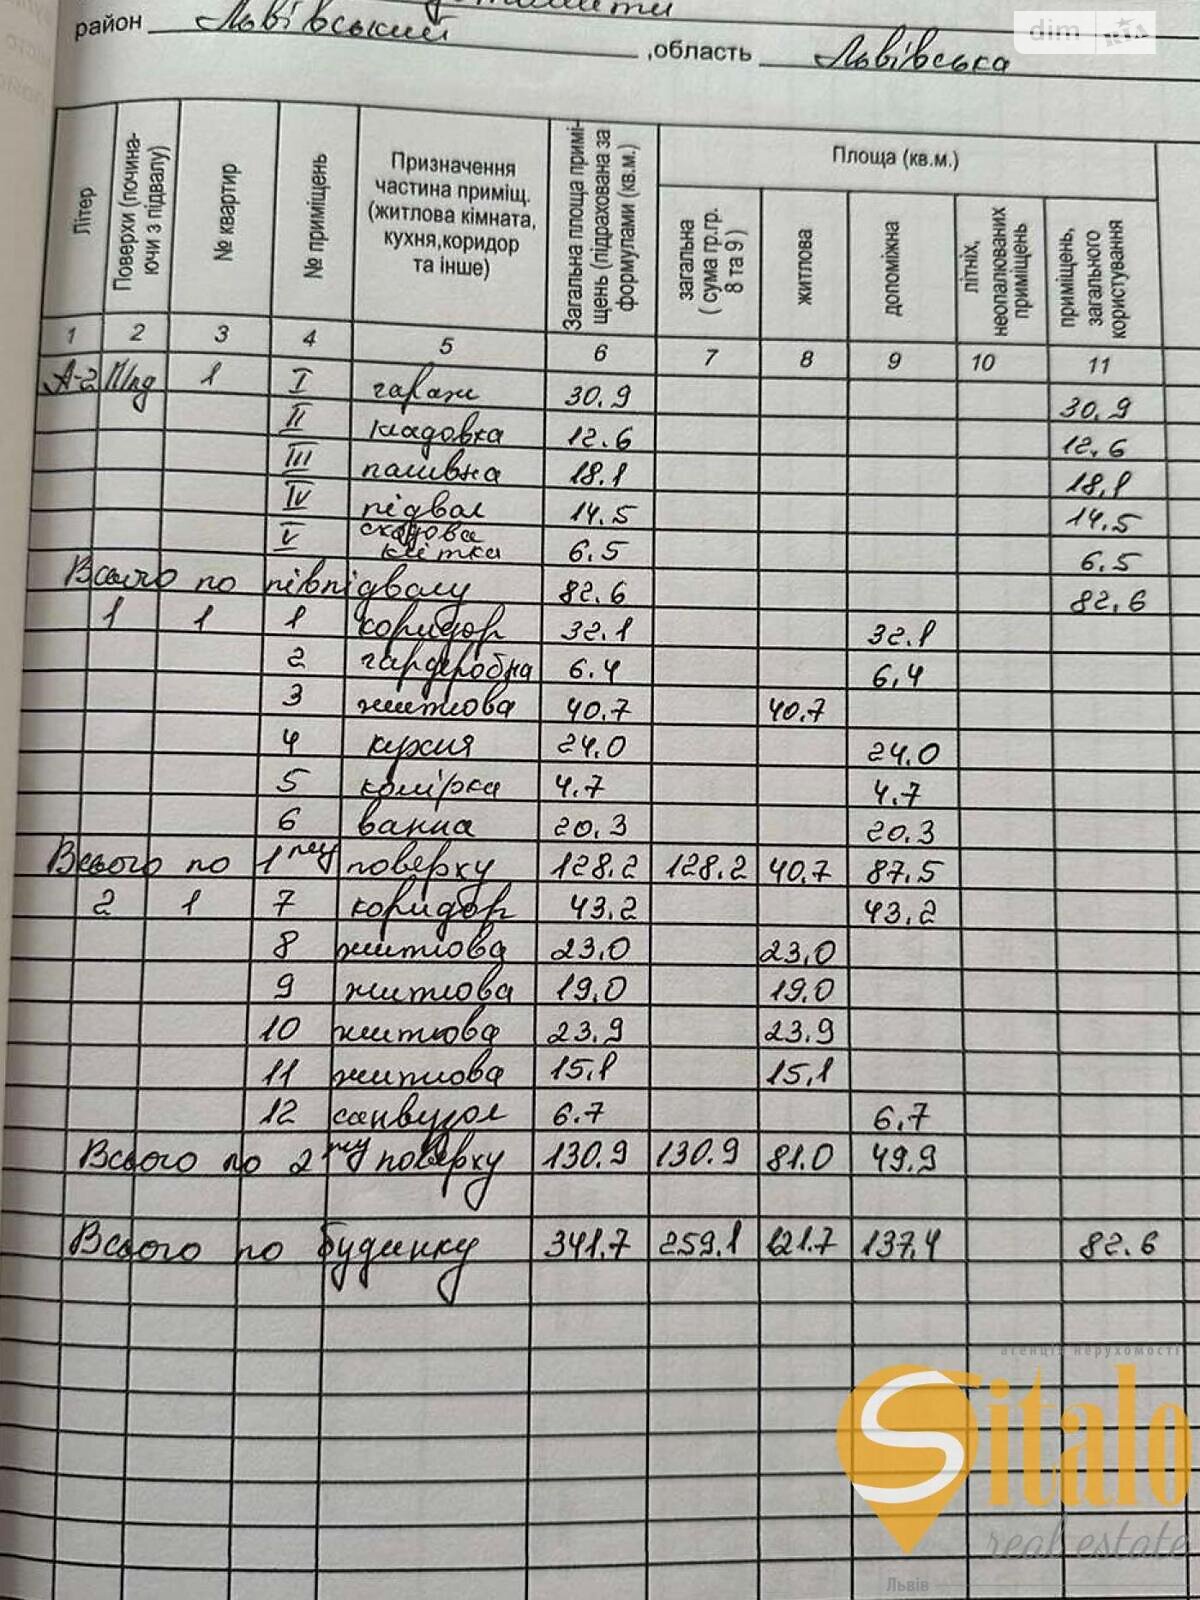 район Львівський ,область Львівська
dim RIA
Площа (кв.м.)
Літер
Поверхи (почина-
ючи з підвалу)
№ квартир
№ приміщень
Призначення
частина приміщ.
(житлова кімната,
кухня,коридор
та інше)
Загальна площа примі-
щень (підрахована за
формулами (кв.м.)
загальна
(сума гр.гр.
8 та 9 )
житлова
допоміжна
літніх,
неопалюваних
приміщень
приміщень,
загального
користування
1 2 3 4 5 6 7 8 9 10 11
А-2 П/пд 1 I гараж 30.9 30.9
II кладовка 12.6 12.6
III паливна 18.1 18.1
IV підвал 14.5 14.5
V сходова
клітка 6.5 6.5
Всього по півпідвалу 82.6 82.6
1 1 1 коридор 32.1 32.1
2 гардеробна 6.4 6.4
3 житлова 40.7 40.7
4 кухня 24.0 24.0
5 комірка 4.7 4.7
6 ванна 20.3 20.3
Всього по 1 му поверху 128.2 128.2 40.7 87.5
2 1 7 коридор 43.2 43.2
8 житлова 23.0 23.0
9 житлова 19.0 19.0
10 житлова 23.9 23.9
11 житлова 15.1 15.1
12 санвузол 6.7 6.7
Всього по 2 му поверху 130.9 130.9 81.0 49.9
Всього по будинку 341.7 259.1 121.7 137.4 82.6
агенція нерухомості
Sitalo
real estate
Львів